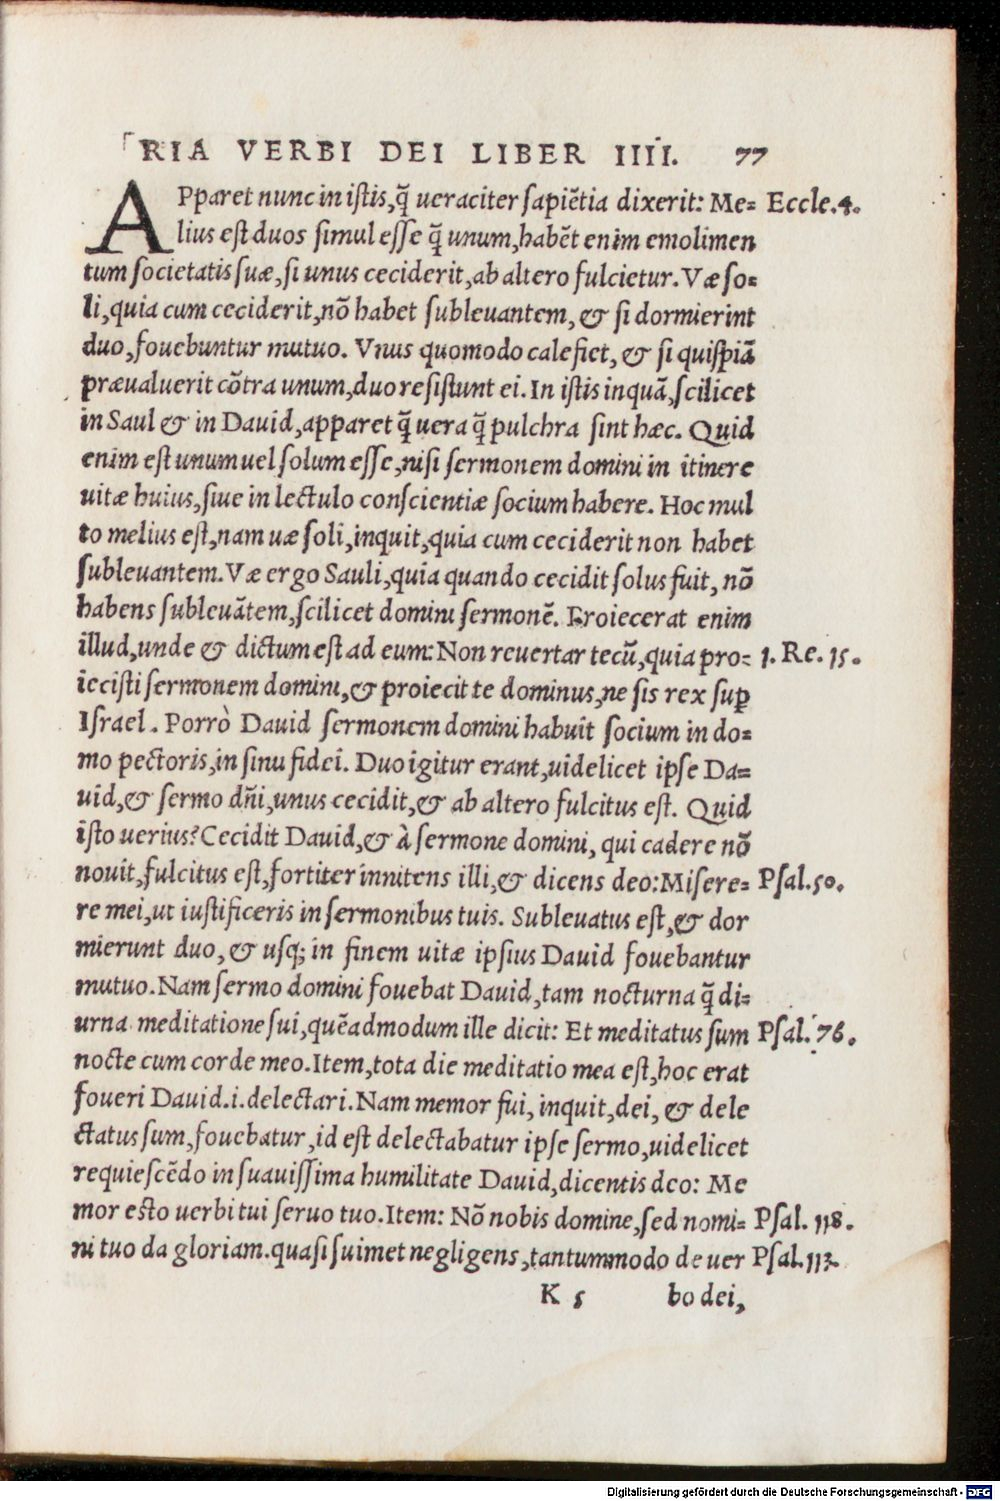 RIA VERBI DEI LIBER IIII. 77
APparet nunc in iſtis,q̃ ueraciter ſapiẽtia dixerit: Me= Eccle.4.
lius eſt duos ſimul eſſe q̃ unum,habẽt enim emolimen
tum ſocietatis ſuæ,ſi unus ceciderit,ab altero fulcietur. Væ ſo=
li,quia cum ceciderit,nõ habet ſubleuantem, & ſi dormierint
duo,fouebuntur mutuo. Vnus quomodo calefiet, & ſi quiſpiã
præualuerit cõtra unum,duo reſiſtunt ei. In iſtis inquã,ſcilicet
in Saul & in Dauid,apparet q̃ uera q̃ pulchra ſint hæc. Quid
enim eſt unum uel ſolum eſſe,niſi ſermonem domini in itinere
uitæ huius,ſiue in lectulo conſcientiæ ſocium habere. Hoc mul
to melius eſt,nam uæ ſoli,inquit,quia cum ceciderit non habet
ſubleuantem. Væ ergo Sauli,quia quando cecidit ſolus fuit, nõ
habens ſubleuãtem,ſcilicet domini ſermonẽ. Proiecerat enim
illud,unde & dictum eſt ad eum: Non reuertar tecũ,quia pro= 1. Re. 15.
ieciſti ſermonem domini,& proiecit te dominus,ne ſis rex ſuꝑ
Iſrael. Porrò Dauid ſermonem domini habuit ſocium in do=
mo pectoris,in ſinu fidei. Duo igitur erant,uidelicet ipſe Da=
uid,& ſermo dñi,unus cecidit,& ab altero fulcitus eſt. Quid
iſto uerius? Cecidit Dauid,& à ſermone domini, qui cadere nõ
nouit,fulcitus eſt,fortiter innitens illi,& dicens deo:Miſere= Pſal.50.
re mei,ut iuſtificeris in ſermonibus tuis. Subleuatus eſt,& dor
mierunt duo,& uſq; in finem uitæ ipſius Dauid fouebantur
mutuo. Nam ſermo domini fouebat Dauid,tam nocturna q̃ di=
urna meditatione ſui,quẽadmodum ille dicit: Et meditatus ſum Pſal. 76.
nocte cum corde meo.Item,tota die meditatio mea eſt,hoc erat
foueri Dauid.i.delectari. Nam memor fui, inquit,dei, & dele
ctatus ſum,fouebatur,id eſt delectabatur ipſe ſermo,uidelicet
requieſcẽdo in ſuauiſſima humilitate Dauid,dicentis deo: Me
mor eſto uerbi tui ſeruo tuo.Item: Nõ nobis domine,ſed nomi= Pſal. 118.
ni tuo da gloriam.quaſi ſuimet negligens,tantummodo de uer Pſal.113.
K 5 bo dei,
Digitalisierung gefördert durch die Deutsche Forschungsgemeinschaft - DFG